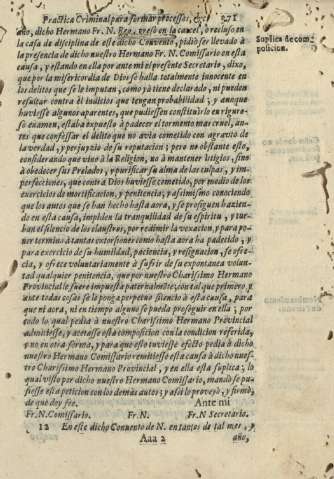 Practica Criminal para formar processos, &c. 371
año, dicho Hermano Fr. N. Reo, preso en la carcel, o recluso en
la casa de disciplina de este dicho Convento, pidiò ser llevado à
la presencia de dicho nuestro Hermano Fr. N. Comissario en esta
causa, y estando en ella por ante mi el presente Secretario, dixo,
que por la misericordia de Dios se halla totalmente innocente en
los delitos que se le imputan, como yà tiene declarado, ni pueden
resultar contra èl indicios que tengan probabilidad; y aunque
huviesse algunos aparentes, que pudiessen constituirlo en riguro-
so examen, estaba expuesto à padecer el tormento mas cruel, an-
tes que confessar el delito que no avia cometido con agravio de
la verdad, y perjuyzio de su reputacion; pero no obstante esto,
considerando que vino à la Religion, no à mantener litigios, sino
à obedecer sus Prelados, y purificar su alma de las culpas, y im-
perfecciones, que contra Dios huviesse cometido, por medio de los
exercicios de mortificacion, y penitencia; y assimismo conociendo
que los autos que se han hecho hasta aora, y se prosiguen hazien-
do en esta causa, impiden la tranquilidad de su espiritu, y tur-
ban el silencio de los claustros, por redimir la vexacion, y para po-
ner termino à tantas extorsiones como hasta aora ha padecido, y
para exercicio de su humildad, paciencia, y resignacion, se ofre-
cia, y ofrece voluntariamente à sufrir de su expontanea volun-
tad qualquier penitencia, que por nuestro Charissimo Hermano
Provincial le fuere impuesta paternalmente; con tal que primero, y
ante todas cosas se le ponga perpetuo silencio à esta causa, para
que ni aora, ni en tiempo alguno se pueda proseguir en ella; por
endo lo qual pedia à nuestro Charissimo Hermano Provincial
admitiesse, y aceptasse esta composicion con la condicion referida,
y no en otra forma, y para que esto tuviesse efecto pedia à dicho
nuestro Hermano Comissario remitiesse esta causa à dicho nues-
tro Charissimo Hermano Provincial, y en ella esta suplica; lo
qual visto por dicho nuestro Hermano Comissario, mandò se pu-
siesse esta peticion con los demàs autos; y assi lo proveyò, y firmò,
de que doy fee. Ante mi
Fr. N. Comissario. Fr. N. Fr. N Secretario.
12 En este dicho Convento de N. en tantos de tal mes, y
Aaa 2 año,
Suplica de com-
posicion.